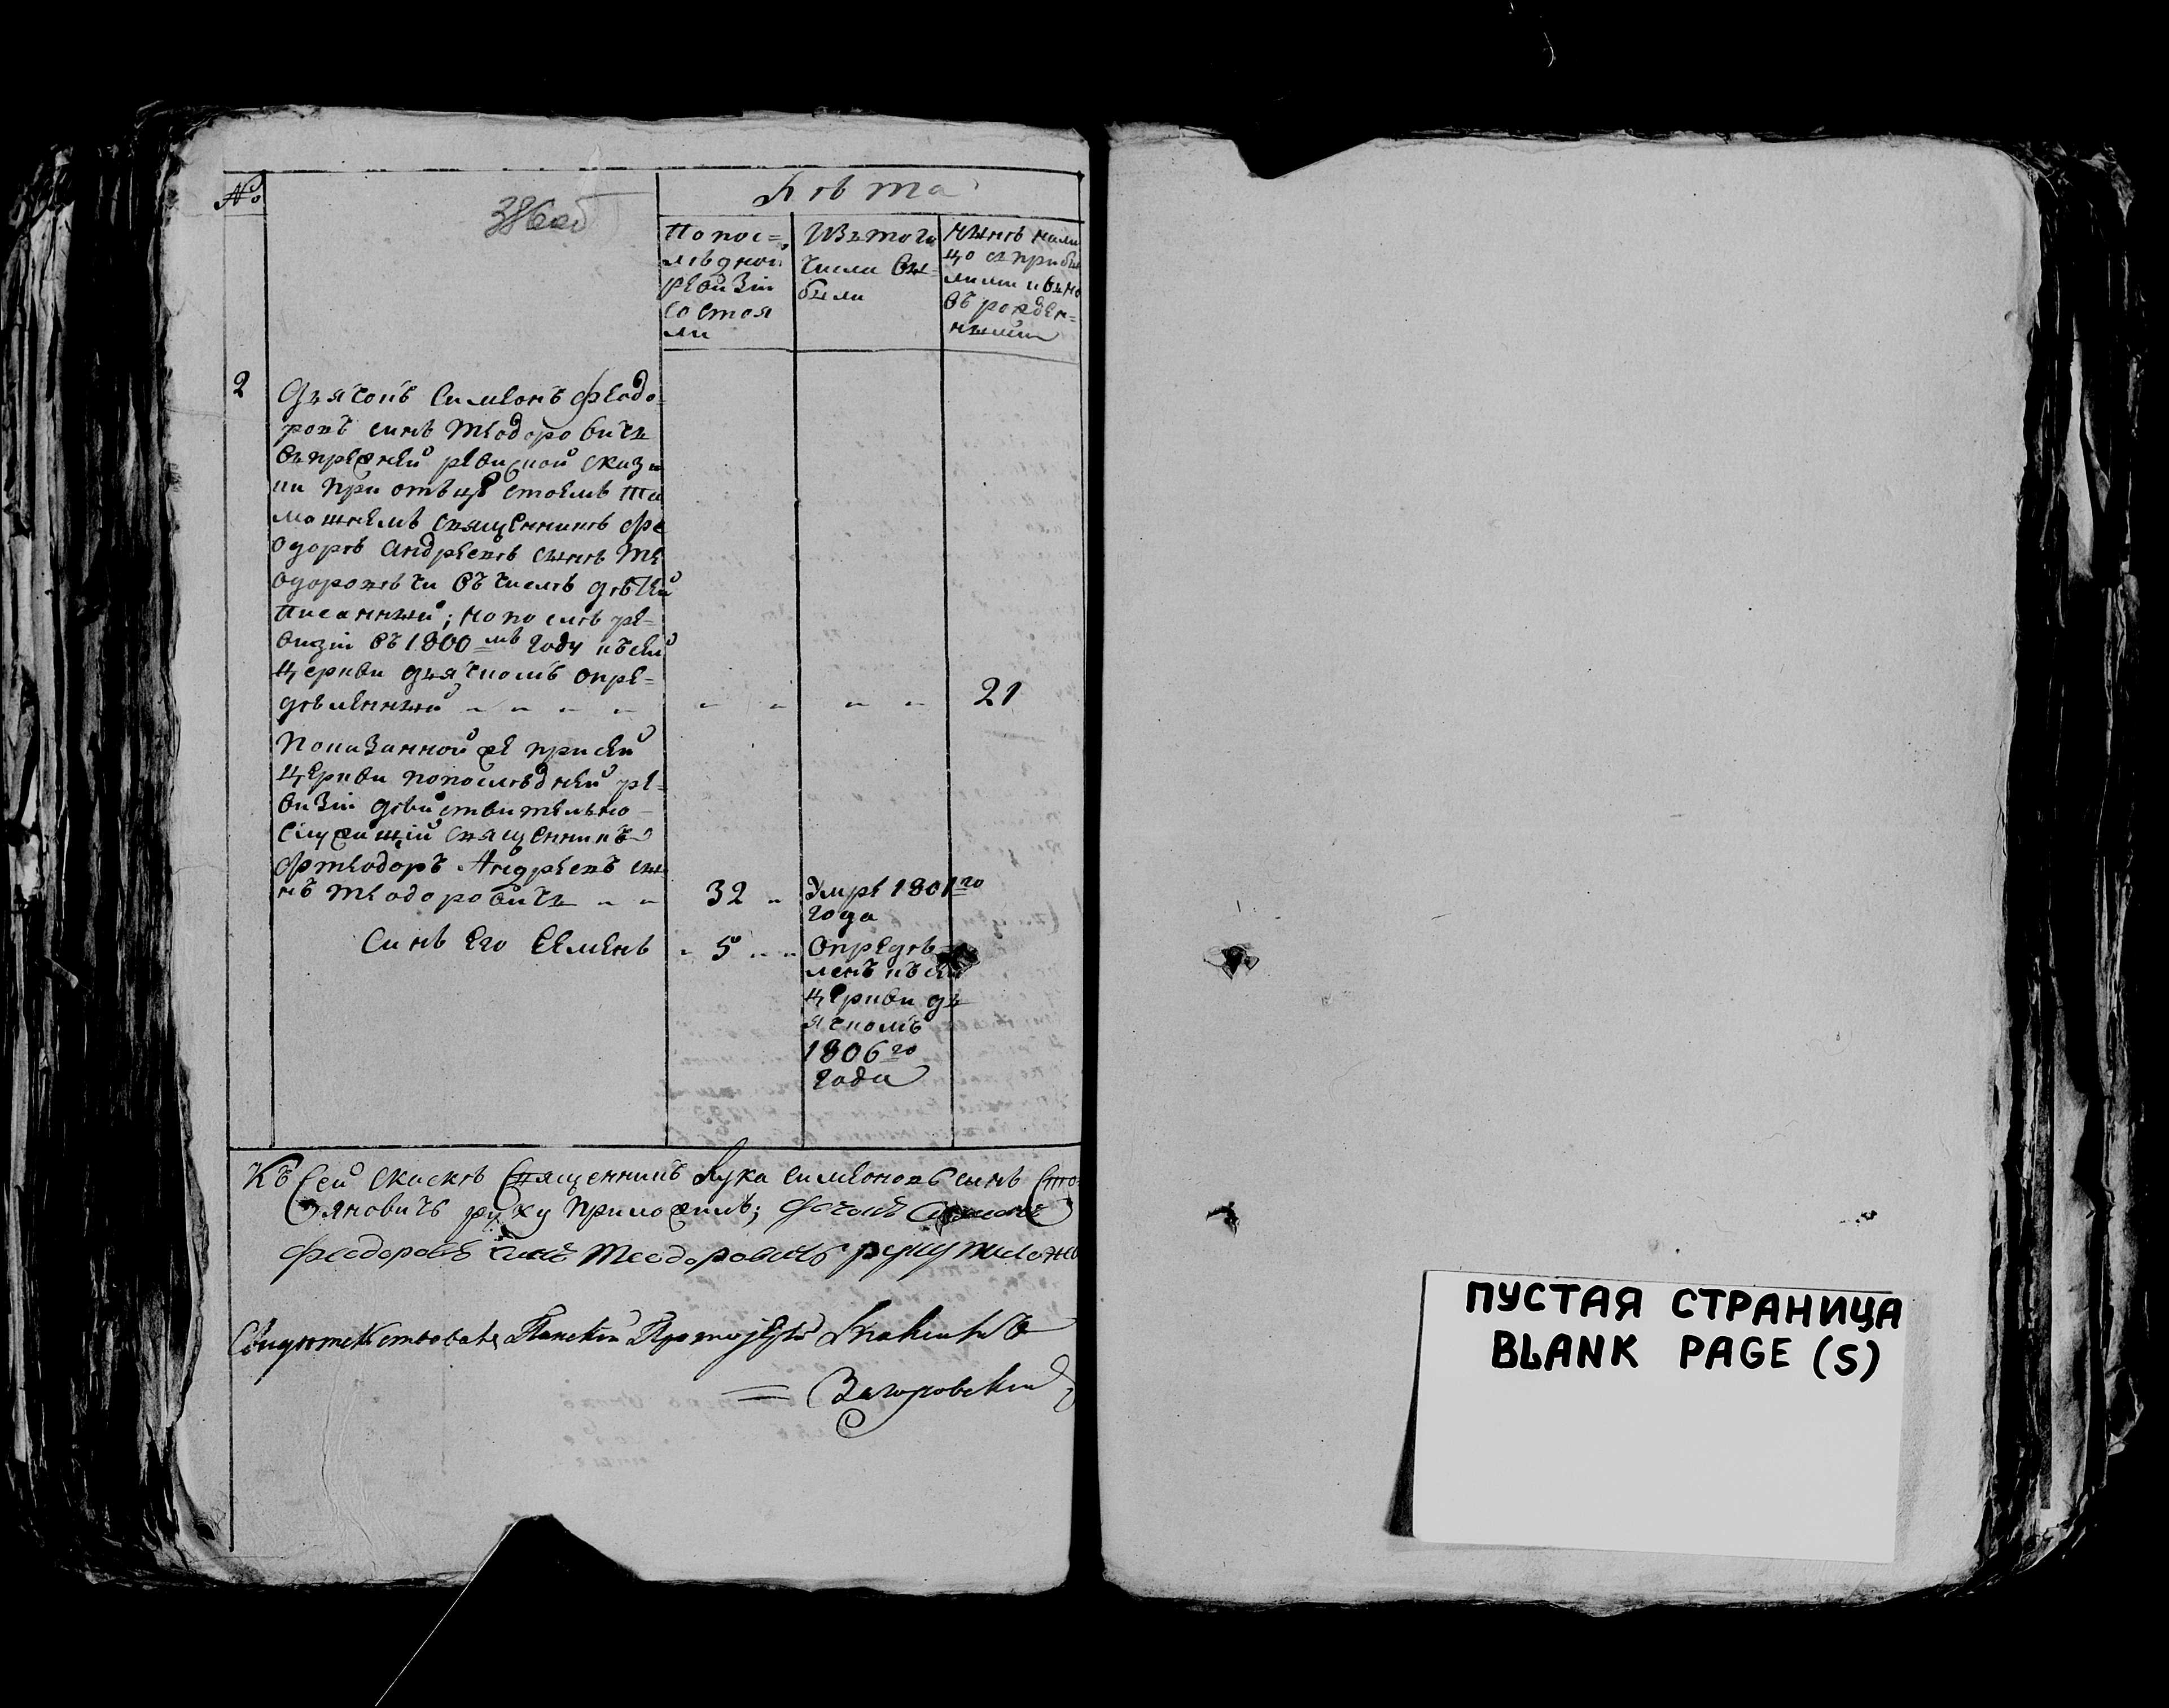 №
386 об
Лѣта
По пос=
лѣдной
ревизіи
состоя
ли
Изъ того
числа вы=
были
Нынѣ нали
цо съ прибы
лыми и вно
въ рожден=
ными
2
Дьячокъ Симеонъ Феодо=
ровъ синъ Теодоровичъ
въ прежней ревизкой сказ
ки при отъцѣ своемъ та
мошнемъ священникѣ Фе
одорѣ Андреевѣ сынѣ Те
одоровѣчи въ числѣ дѣтей
писанный; но по слѣ ре=
визіи въ 1800 мъ году къ сей
церкви дьячкомъ опре=
дѣленный
21
Показанной же при сей
церкви по послѣдней ре=
визіи дѣйствительно
служащій священникъ
Фтеодоръ Андреевъ сы
нъ Теодоровичъ
32
Умре 1801го
года
Синъ его Семенъ
5
Опредѣ
ленъ къ сей
церкви дь
ячкомъ
1806го
года
Къ сей скаскѣ Священникъ Лука Симеоновъ синъ Сто
яновичъ руку приложилъ; Дячокъ Симеонъ
Феодоровъ синъ Теодоровичъ руку
Свидѣтелствовалъ Протоіерей
Загоровскій
ПУСТАЯ СТРАНИЦА
BLANK PAGE (S)